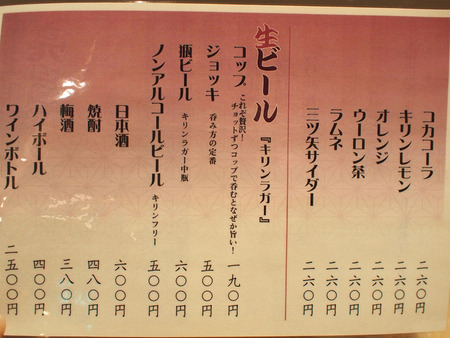 コカコーラ 二六〇円
キリンレモン 二六〇円
オレンジ 二六〇円
ウーロン茶 二六〇円
ラムネ 二六〇円
三ツ矢サイダー 二六〇円
生ビール 『キリンラガー』
コップ これぞ贅沢！ チョットずつコップで呑むとなぜか旨い！ 一九〇円
ジョッキ 呑み方の定番 五〇〇円
瓶ビール キリンラガー中瓶 六〇〇円
ノンアルコールビール キリンフリー 五〇〇円
日本酒 六〇〇円
焼酎 四八〇円
梅酒 三八〇円
ハイボール 四〇〇円
ワインボトル 二五〇〇円